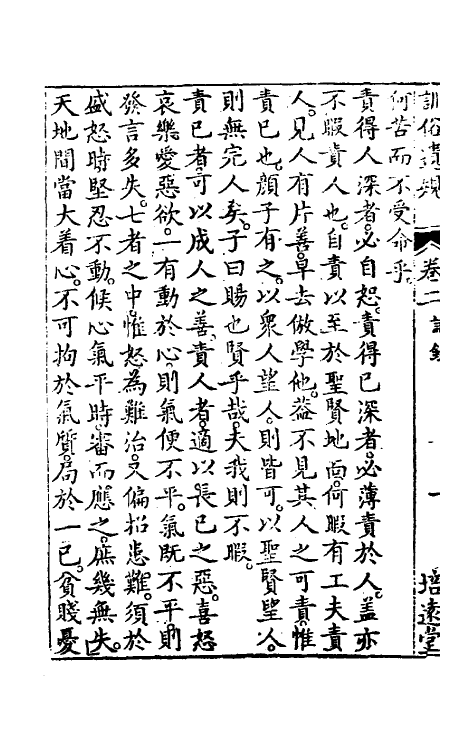 訓俗遺規 卷二 語錄 一 培遠堂
何苦而不受命乎。
責得人深者。必自恕。責得己深者。必薄責於人。蓋亦
不暇責人也。自責以至於聖賢地面。何暇有工夫責
人。見人有片善。早去倣學他。蓋不見其人之可責。惟
責己也。顏子有之。以衆人望人。則皆可。以聖賢望人。
則無完人矣。子曰賜也賢乎哉。夫我則不暇。
責己者。可以成人之善。責人者。適以長己之惡。喜怒
哀樂愛惡欲。一有動於心則氣便不平。氣既不平。則
發言多失。七者之中。惟怒為難治。又偏招患難。須於
盛怒時堅忍不動。候心氣平時。審而應之。庶幾無失。
天地間當大着心。不可拘於氣質。局於一己。貧賤憂